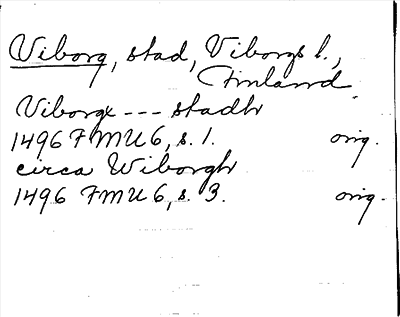 Viborg, stad, Viborgs l.,
Finland
Viborgx --- stadh
1496 FMU 6, s. 1. orig.
circa Wiborgh
1496 FMU 6, s. 3. orig.